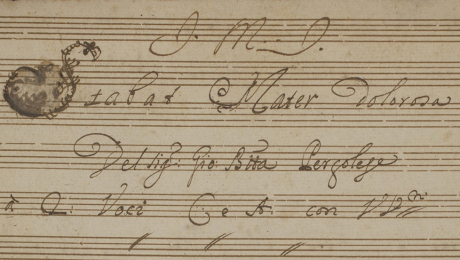 J. M. J.
Stabat Mater Dolorosa
Del Sig: Gio: Btta Pergolese
à 2: Voci C e A: con VV:ni